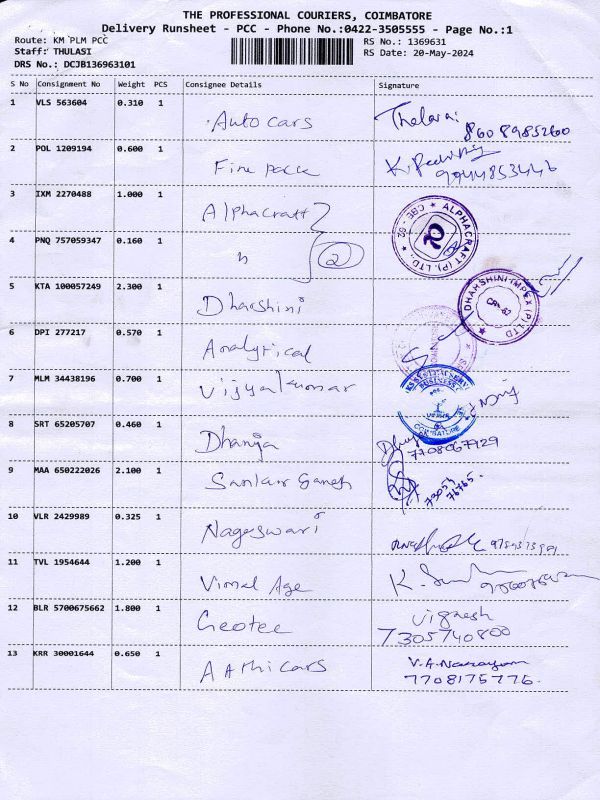 THE PROFESSIONAL COURIERS, COIMBATORE
Delivery Runsheet - PCC - Phone No.:0422-3505555 - Page No.:1
Route: KM PLM PCC RS No.: 1369631
Staff: THULASI RS Date: 20-May-2024
DRS No.: DCJB136963101
S No Consignment No Weight PCS Consignee Details Signature
1 VLS 563604 0.310 1 Auto cars
86089852600
2 POL 1209194 0.600 1 Fine pack
9944853446
3 IXM 2270488 1.000 1 Alphacraft
ALPHACRAFT (P). LTD., ★ CBE - 62 ★
4 PNQ 757059347 0.160 1 " (2)
5 KTA 100057249 2.300 1 Dharshini
DHARSHINI IMPEX (P) LTD ★
6 DPI 277217 0.570 1 Analytical
7 MLM 34438196 0.700 1 Vijyalkumar
COIMBATORE
8 SRT 65205707 0.460 1 Dhanya
7708067929
9 MAA 650222026 2.100 1 Sankar Ganesh
73054
76765.
10 VLR 2429989 0.325 1 Nageswari
11 TVL 1954644 1.200 1 Vimal Age
12 BLR 5700675662 1.800 1 Geotec Vignesh
7305740800
13 KRR 30001644 0.650 1 Aathi cars V.A. Narayanan
7708175776.